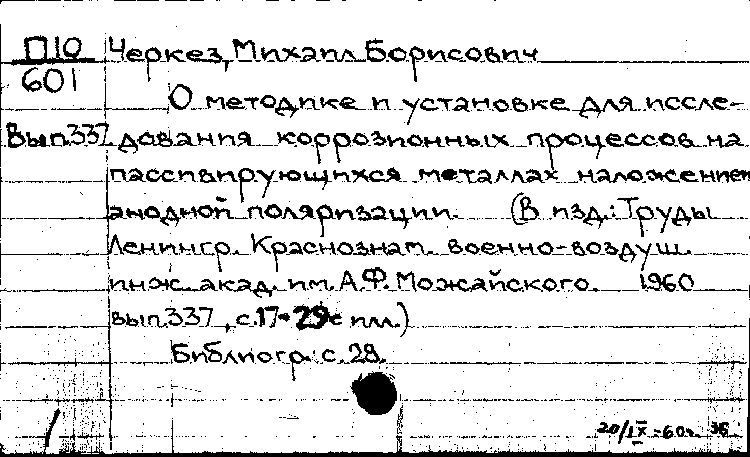 П10 Черкез, Михаил Борисович
601
О методике и установке для иссле-
Вып.337 дования коррозионных процессов на
пассивирующихся металлах наложением
анодной поляризации. (В изд.: Труды
Ленингр. Краснознам. военно-воздуш.
инж. акад. им. А.Ф. Можайского. 1960
вып.337, с.17-29 с илл.)
Библиогр. с. 28.
20/IX-60г.